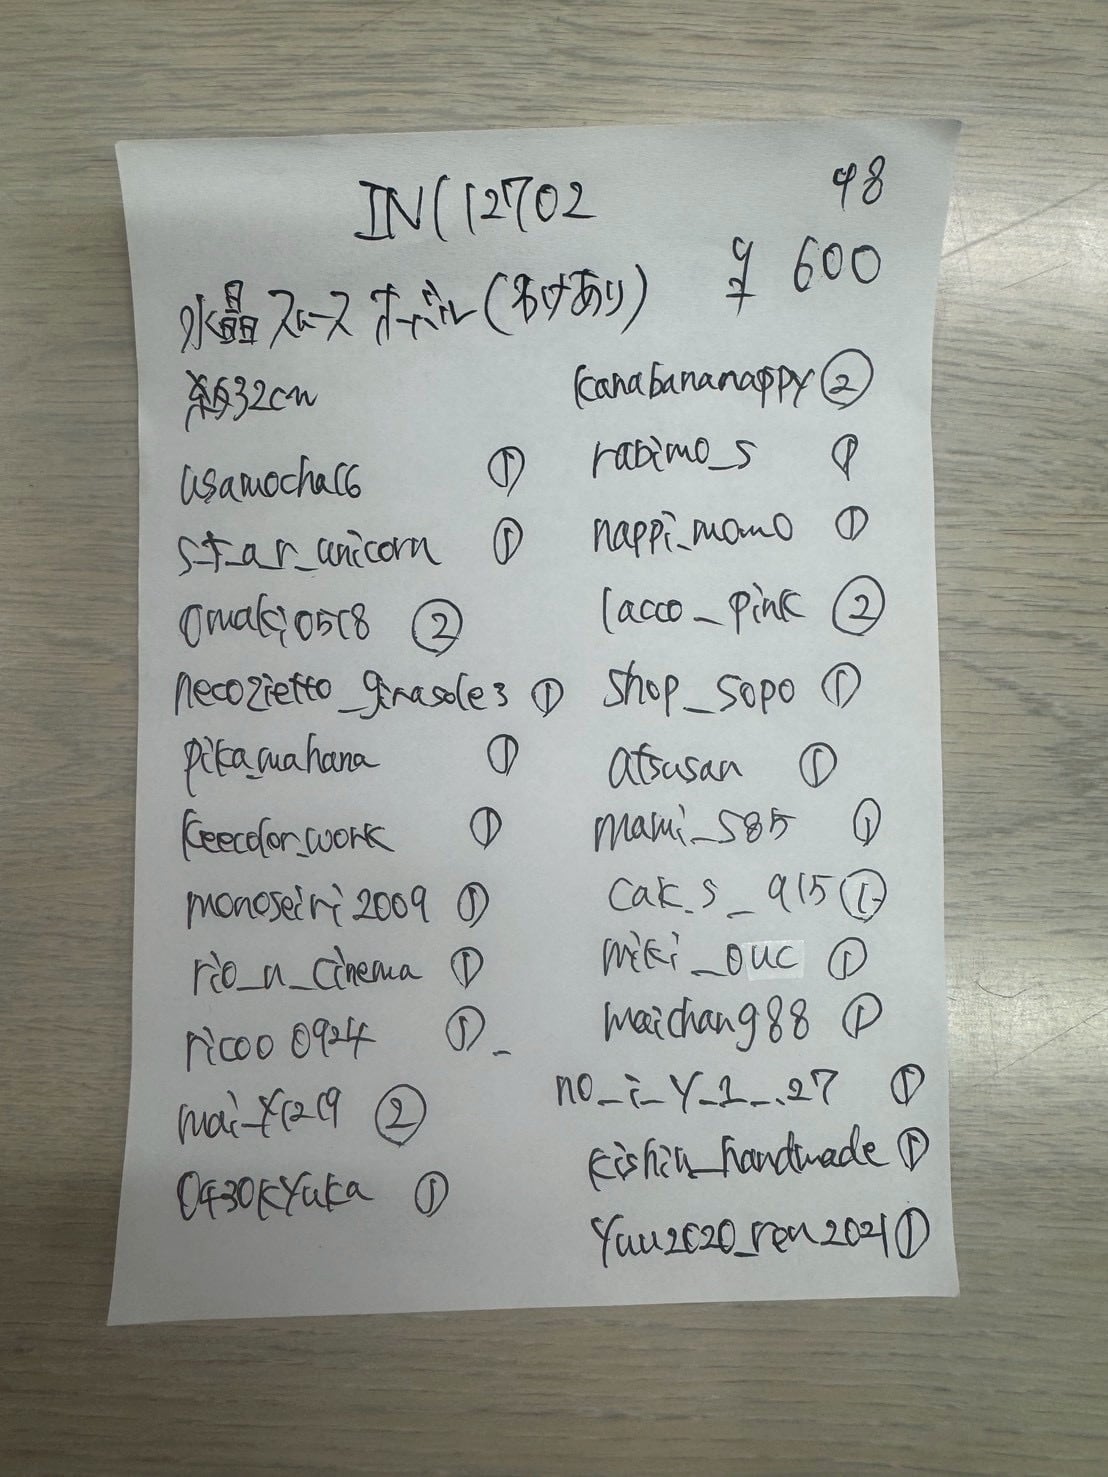 IN112702
98
¥ 600
水晶 スムース オーバル (わけあり)
約32cm
usamocha16 ①
s_t_a_r_unicorn ①
omaki0518 ②
necozietto_girasole3 ①
pika_mahana ①
keecolor_work ①
monoseiri2009 ①
rio_n_cinema ①
ricoo0924 ①
mai_y1219 ②
0430kyuka ①
kanabananappy ②
rabimo_s ①
nappi_momo ①
lacco_pink ②
shop_sopo ①
atsusan ①
mami_s85 ①
cak.s_915 ①
miki_ouc ①
maichan988 ①
no_i_y_1_.27 ①
kishin_handmade ①
yuu2020_ren2021 ①